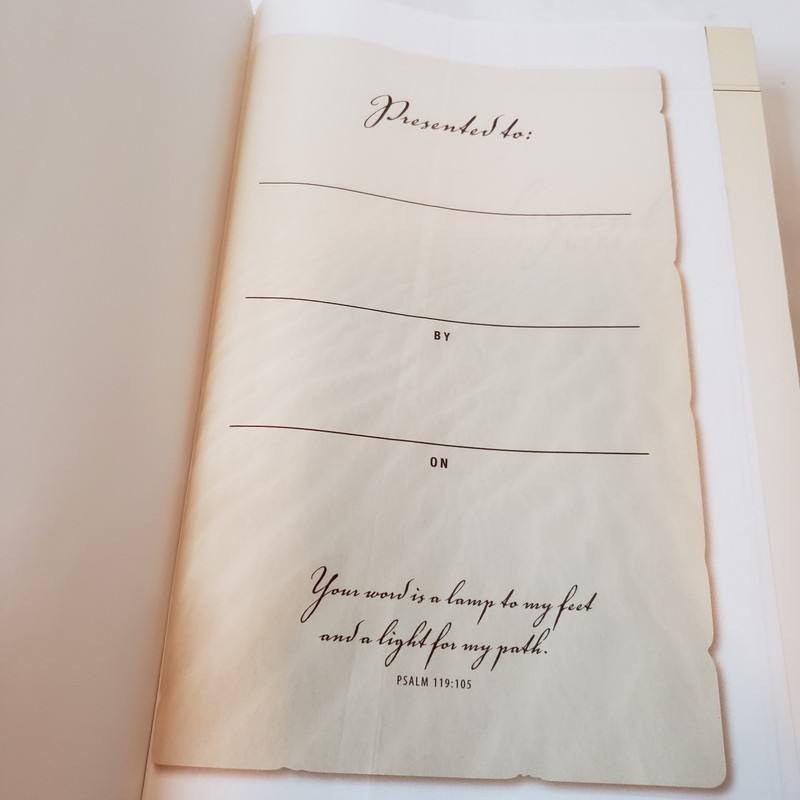 Presented to:
BY
ON
Your word is a lamp to my feet
and a light for my path.
PSALM 119:105